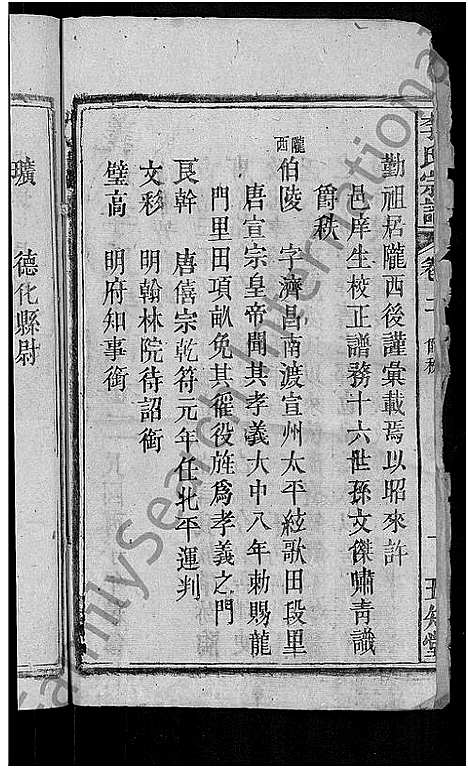 李氏宗譜 卷二
勤祖居隴西後謹彙載焉以昭來許
邑庠生校正譜務十六世孫文傑嘯青識
爵秩
隴西 伯陵 字濟昌南渡宣州太平絃歌田段里
唐宣宗皇帝聞其孝義大中八年勅賜龍
門里田項畝免其徭役旌爲孝義之門
良幹 唐僖宗乾符元年任北平運判
文彩 明翰林院待詔銜
璧高 明府知事銜
曠 德化縣尉
FamilySearch International